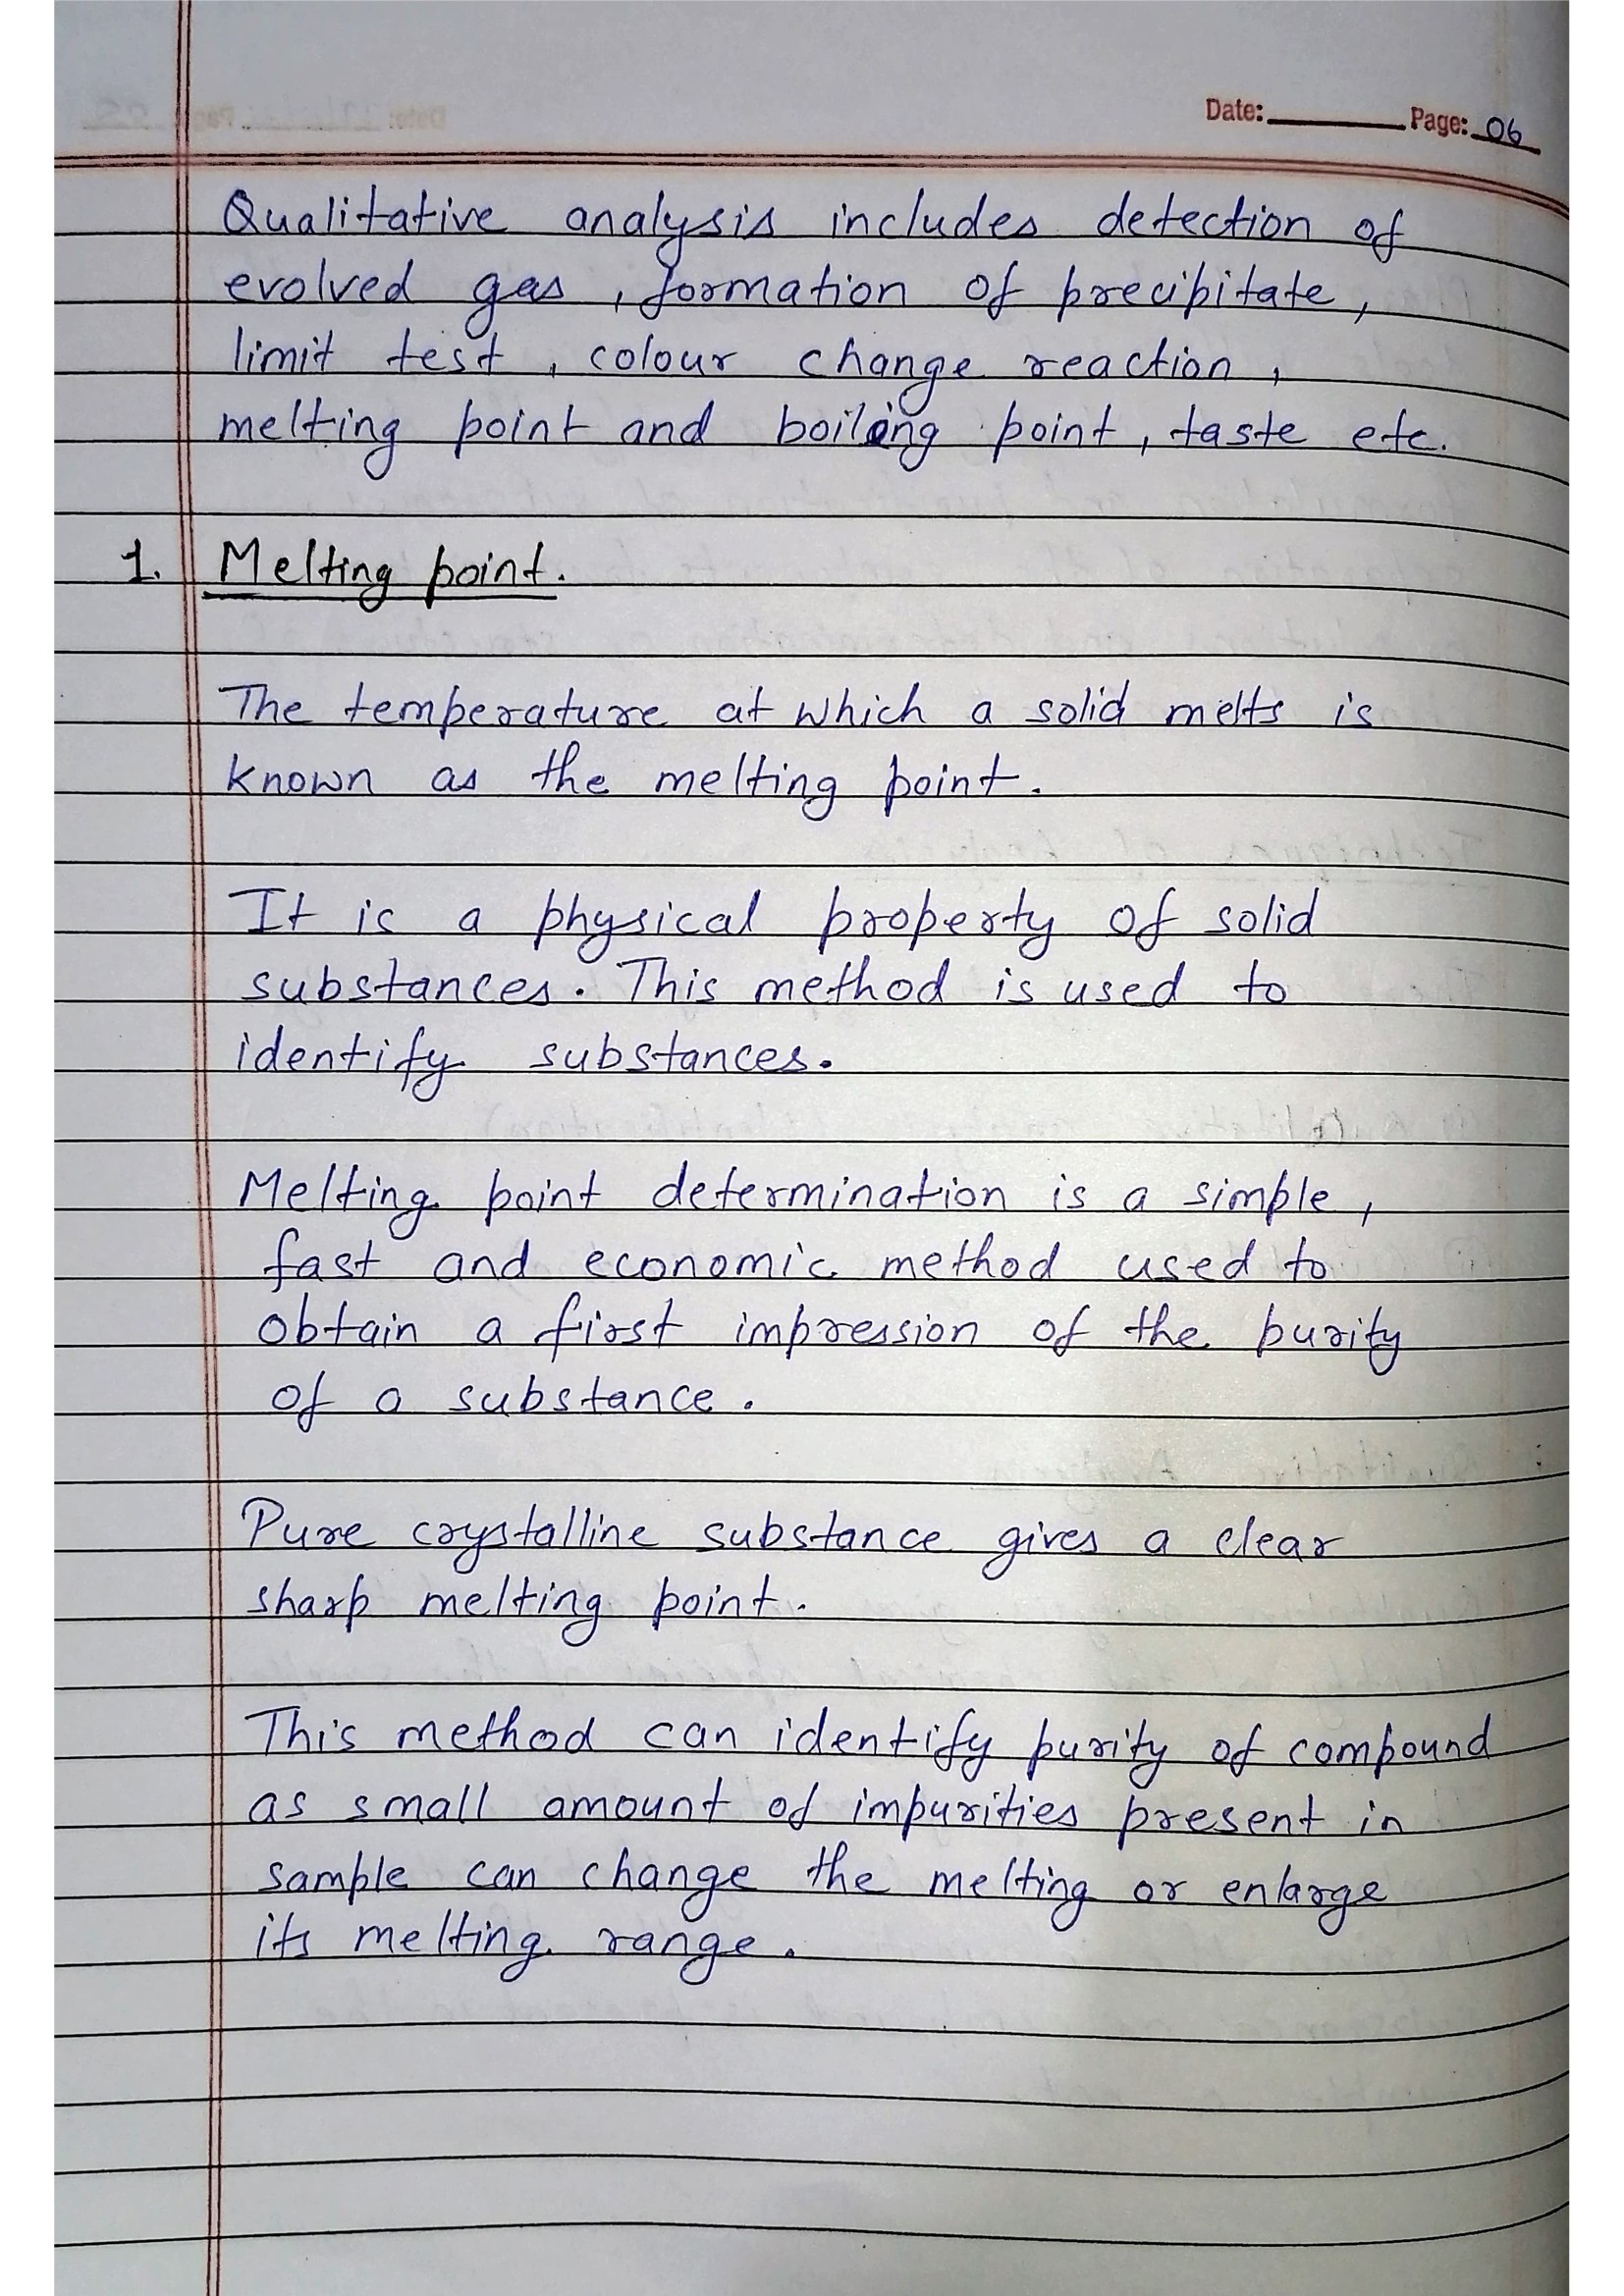 Date: Page: 06
Qualitative analysis includes detection of
evolved gas, formation of precipitate,
limit test, colour change reaction,
melting point and boiling point, taste etc.
1. Melting point.
The temperature at which a solid melts is
known as the melting point.
It is a physical property of solid
substances. This method is used to
identify substances.
Melting point determination is a simple,
fast and economic method used to
obtain a first impression of the purity
of a substance.
Pure crystalline substance gives a clear
sharp melting point.
This method can identify purity of compound
as small amount of impurities present in
sample can change the melting or enlarge
its melting range.